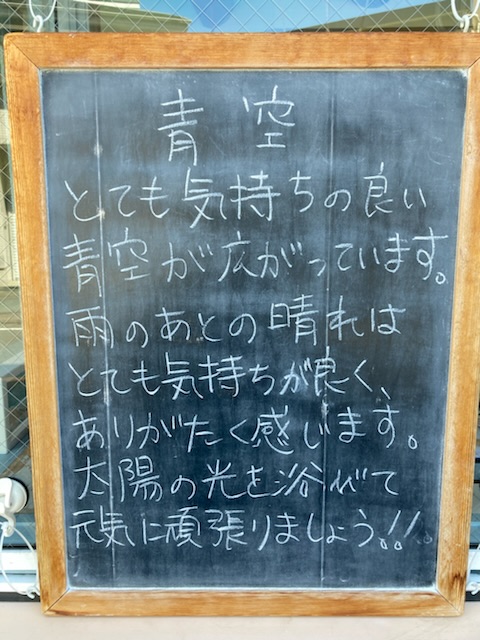 青空
とても気持ちの良い
青空が広がっています。
雨のあとの晴れは
とても気持ちが良く、
ありがたく感じます。
太陽の光を浴びて
元気に頑張りましょう!!